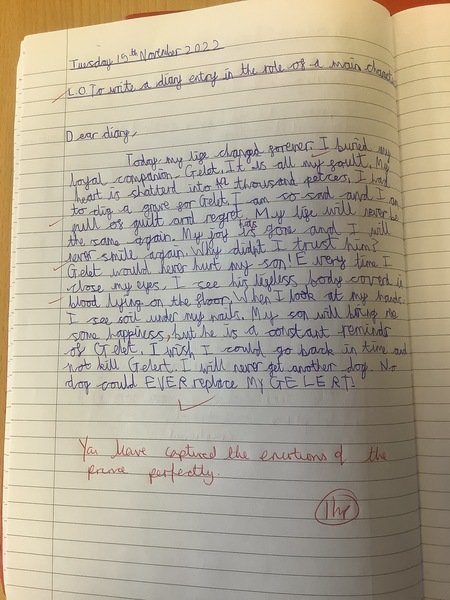 Tuesday 15th November 2022
L.O To write a diary entry in the role of a main character
Dear diary,
Today my life changed forever. I buried my
loyal companion - Gelet. It is all my fault. My
heart is shatterd into thousand peices. I had
to dig a grave for Gelet. I am so sad and I am
full of guilt and regret. My life will never be
the same again. My joy has gone and I will
never smile again. Why didn't I trust him?
Gelet would never hurt my son! Every time I
close my eyes. I see his lifeless body coverd in
blood lying on the floor. When I look at my hands
I see soil under my nails. My son will bring me
some happiness, but he is a constant reminds
of Gelet. I wish I could go back in time and
not kill Gelert. I will never get another dog. No
dog could EVER replace MY GELERT!
You have captured the emotions of the
prince perfectly.
1hp